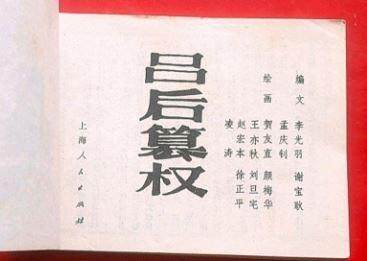 编文 李光羽 谢宝耿
孟庆钊
绘画 贺友直 颜梅华
王亦秋 刘旦宅
赵宏本 徐正平
凌涛
吕后篡权
上海人民出版社